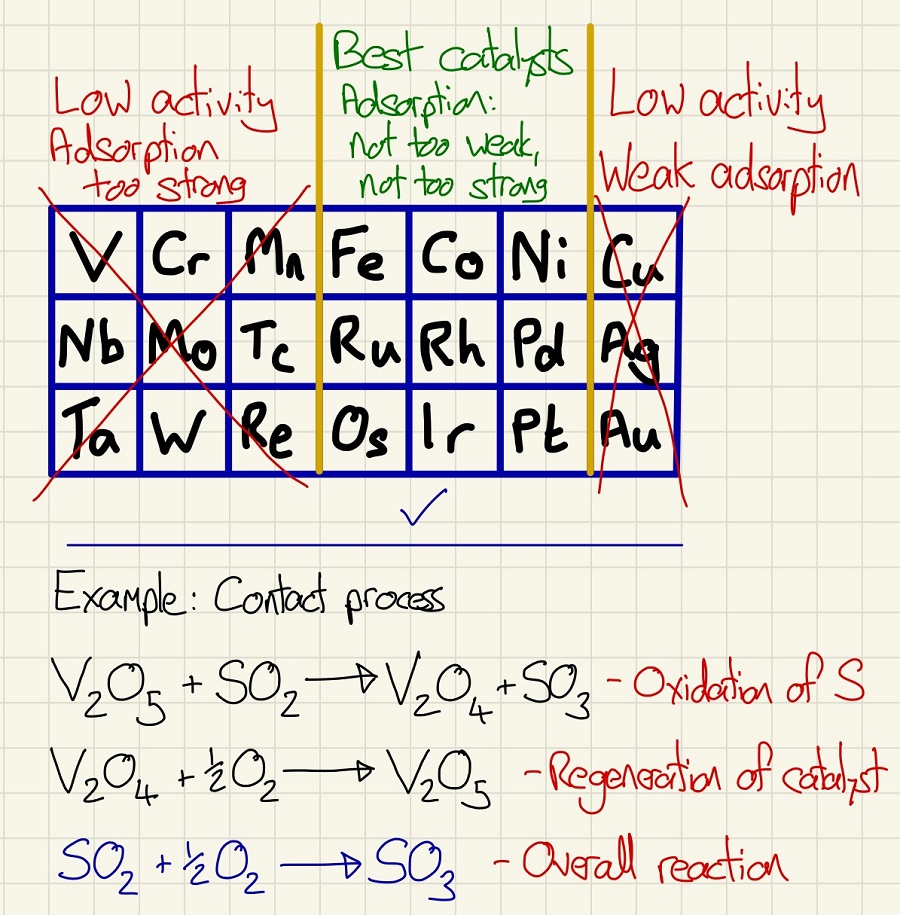 Low activity
Adsorption
too strong
Best catalysts
Adsorption:
not too weak,
not too strong
Low activity
Weak adsorption
V Cr Mn Fe Co Ni Cu
Nb Mo Tc Ru Rh Pd Ag
Ta W Re Os Ir Pt Au
✓
Example: Contact process
V₂O₅ + SO₂ → V₂O₄ + SO₃ - Oxidation of S
V₂O₄ + ½O₂ → V₂O₅ - Regeneration of catalyst
SO₂ + ½O₂ → SO₃ - Overall reaction